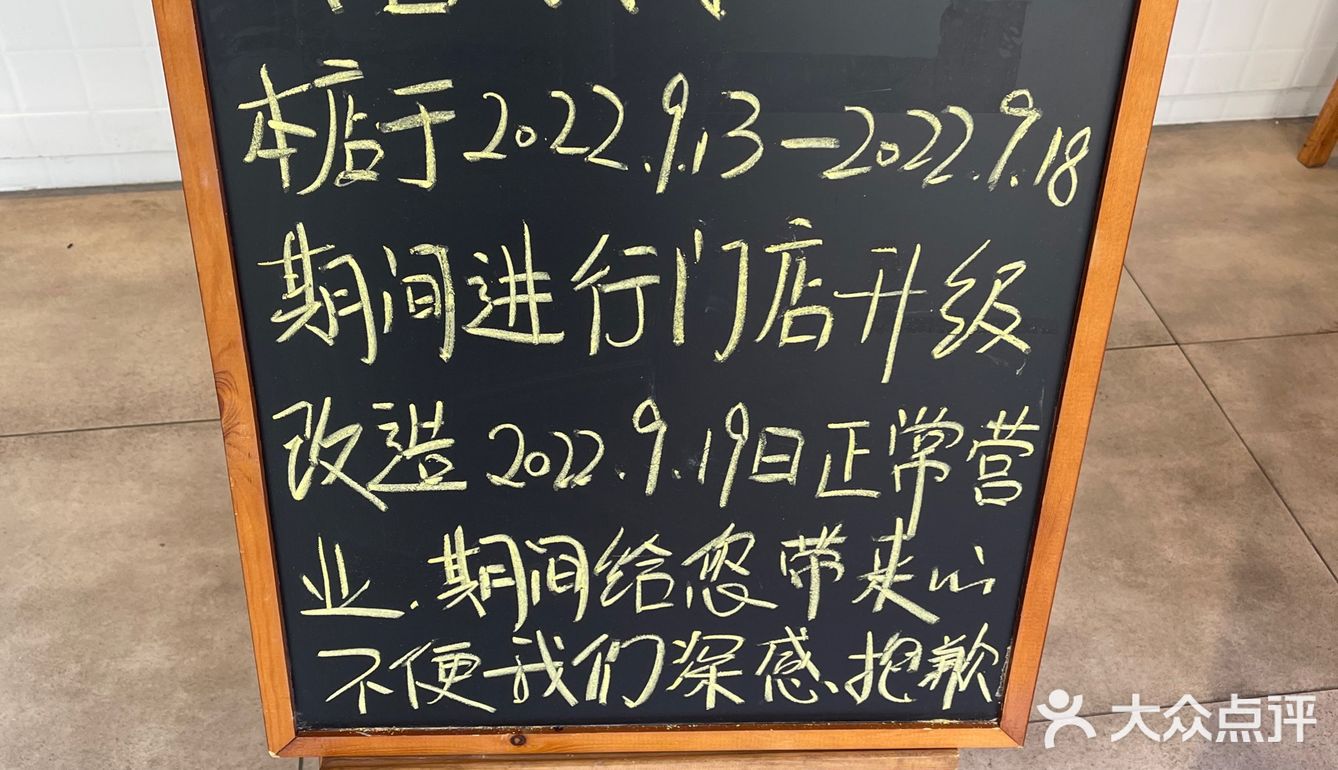 本店于2022.9.13—2022.9.18
期间进行门店升级
改造2022.9.19日正常营
业.期间给您带来的
不便我们深感抱歉
大众点评